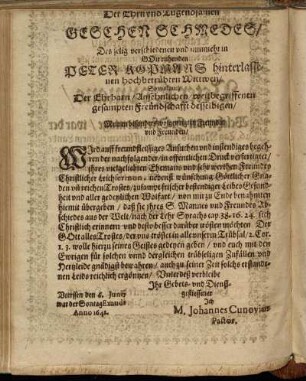 Der Ehrn und Tugendsamen
GESCHEN SCHMEDES/
Des selig verschiedenen und nunmehr in
GOtt ruhenden
PETER KOPMANS hinterlasse-
nen hochbetrübten Witwen/
Der Ehrbarn/ Ansehnlichen/
gesampten Freundschafft desselbigen/
und Freunden/
Wird auff freundfleissiges Ansuchen und inständiges begeh-
ren der nachfolgender/ in offentlichen Druck
ihres vielgeliebten Ehemans und sehr werthen Freundes
Christlicher Leich Sermon/ nebenst wünschung Göttlicher Gna-
den und reichen Trostes/ zusampt frischer bestendiger Leibes Gesund-
heit und aller gedeylichen Wolfart/ von mir zu Ende benandten
hiemit übergeben/ daß sie ihres S. Mannes und Freundes Ab-
schiedes aus der Welt/ nach der Lehr Syrachs cap 38. 16. 24. sich
Christlich erinnern und desto besser darüber trösten möchten. Der
GOtt alles Trostes/ der uns tröstet in allem unserm Trübsal/ 2. Cor.
1. 3. wolle hierzu seines Geistes gedeyen geben/ und euch mit den
Ewrigen für solchen und dergleichen trübseligen Zufällen und
Hertzleide gnädigst bewahren/ auch zu seiner Zeit solchs erstande-
nen Leids reichlich ergötzen/ Unterdeß verbleibe
Ihr Gebets- und Dienst-
geflissener
den 6. Junij
war der Sontag Exaudi
Anno 1641.
M. Johannes Cunovius
Pastor.